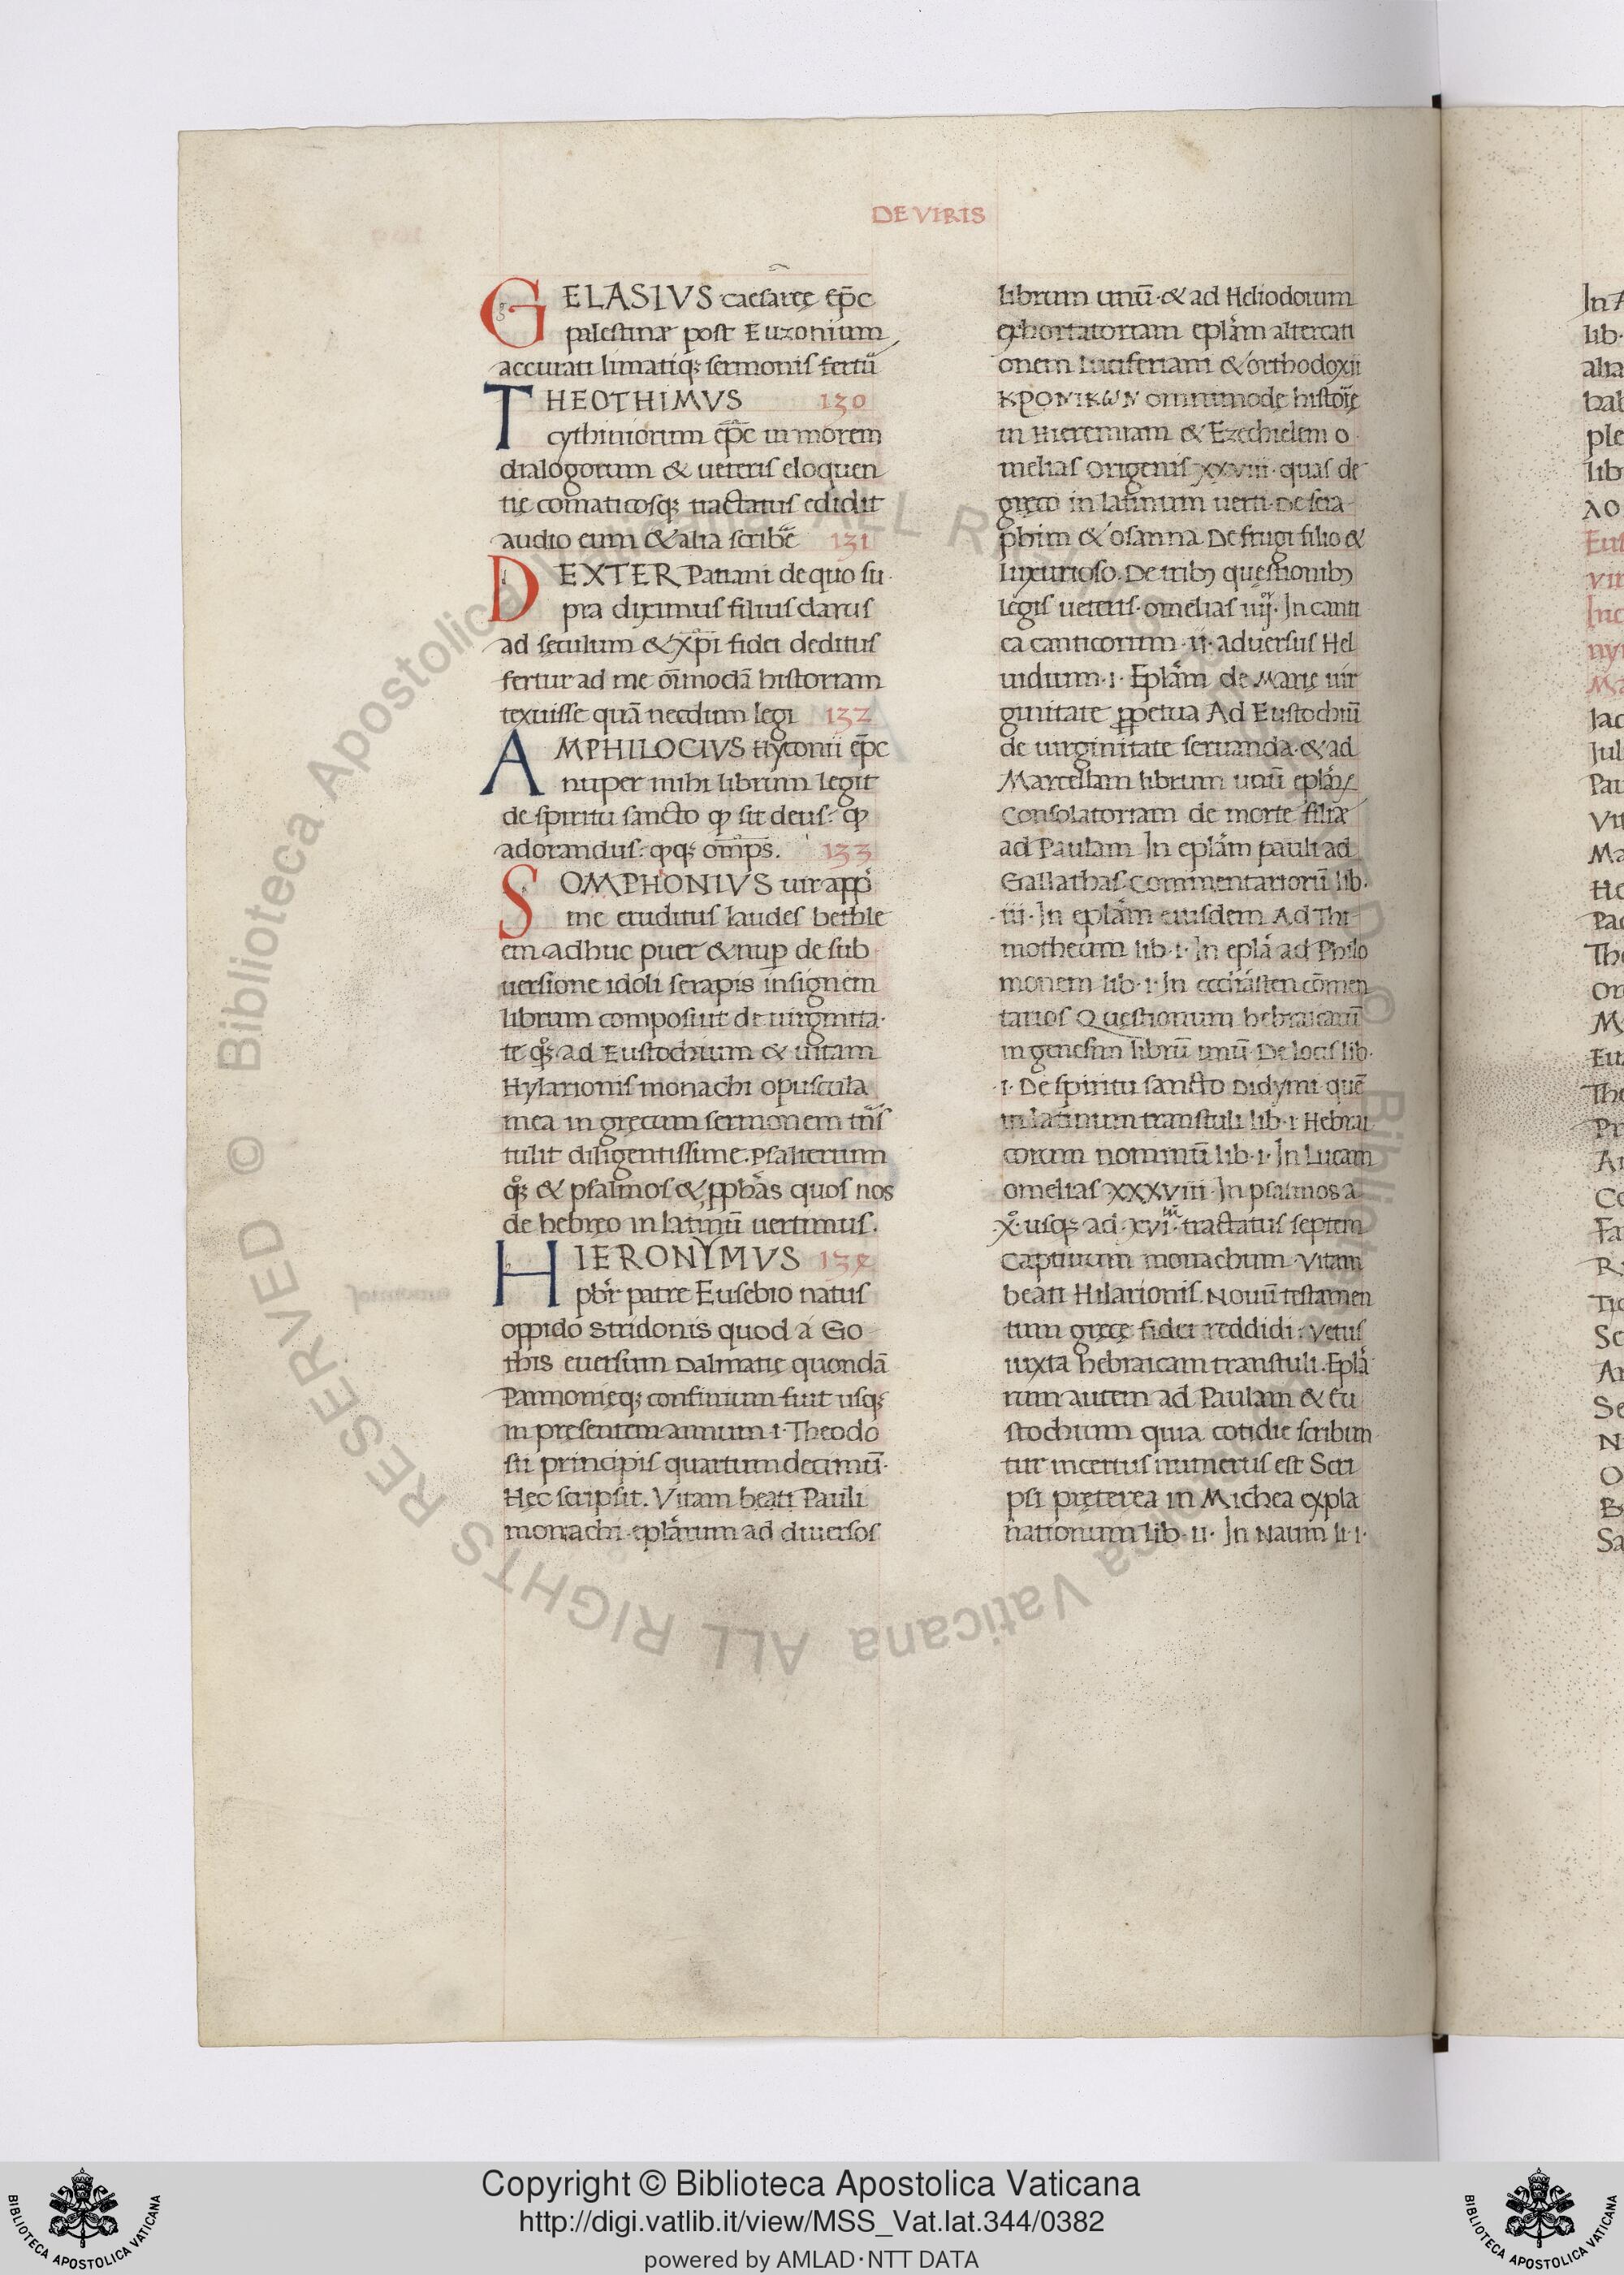 DE VIRIS
GELASIVS caesaręę ep̄c
palestinæ post Euzonium
accurati limatiq; sermonis fertū
THEOTHIMVS 130
cythiniorum ep̄c in morem
dialogorum & ueteris eloquen
tię comaticosq; tractatus edidit
audio eum & alia scribe 131
DEXTER Patiani de quo su
pra diximus filius clarus
ad sęculum & xp̄i fidei deditus
fertur ad me om̄imodā historiam
texuisse quā necdum legi 132
AMPHILOCIVS Hyconii ep̄c
nuper mihi librum legit
de spiritu sancto ꝙ sit deus: ꝙ
adorandus: ꝙq; om̄ps. 133
SOMPHONIVS uir app
me eruditus laudes bethle
em adhuc puer & nup de sub
uersione idoli serapis insignem
librum composiuit de uirginita
te q; ad Eustochium & uitam
Hylarionis monachi opuscula
mea in gręcum sermonem tns
tulit diligentissime. Psalterium
q; & psalmos & ꝓphas quos nos
de hebręo in latinū uertimus.
HIERONYMVS 134
pbr patre Eusebio natus
oppido Stridonis quod a Go
this euersum Dalmatię quondā
Pannonięq; confinium fuit usq;
in pręsentem annum .i. Theodo
sii principis quartumdecimū.
Hec scripsit. Vitam beati Pauli
monachi eplarum ad diuersos
librum unū. & ad Heliodorum
exhortatoriam eplam altercati
onem Luciferiani & orthodoxii
ΚΡΟΝΙΚωΝ omnimodę histoię
in Hieremiam & Ezechielem o
melias Origenis xxviii. quas de
gręco in latinum uerti. De sera
phim & osanna De frugi filio &
luxurioso. De tribꝫ quęstionibꝫ
legis ueteris. omelias iiij. In canti
ca canticorum .ii. aduersus Hel
uidium .i. Eplam de Marię uir
ginitate ꝑpetua Ad Eustochiū
de uirginitate seruanda. & ad
Marcellam librum unū eplaꝝ
Consolatoriam de morte filiæ
ad Paulam In eplam pauli ad
Gallathas Commentariorū lib.
iii. In eplam eiusdem Ad Thi
motheum lib. i. In epla ad Philo
monem lib. i. In eccliasten cōmen
tarios Quęstionum hebraicarū
in genesim librū unū. De locis lib.
i. De spiritu sancto Didymi quē
in latinum transtuli lib. i Hebrai
corum nominū lib. i. In Lucam
omelias xxxviii. In psalmos a
x. usq; ad. xvi. tractatus septem
Captiuum monachum. Vitam
beati Hilarionis. Nouū testamen
tum gręcę fidei reddidi. Vetus
iuxta hebraicam transtuli. Epla
rum autem ad Paulam & eu
stochium quia cotidie scribun
tur incertus numerus est Scri
psi pręterea in Michea expla
nationum lib. ii. In Naum li. i.
In A
lib.
alia
bab
ple
lib
λο
Eus
vir
nyr
Ma
Iac
Iul
Pau
Vit
Ma
Pac
The
Or
M
Eu
The
Pr
A
Co
Fa
R
Tic
Sc
A
Se
N
O
B
Sa
© Biblioteca Apostolica Vaticana ALL RIGHTS RESERVED
Copyright © Biblioteca Apostolica Vaticana
http://digi.vatlib.it/view/MSS_Vat.lat.344/0382
powered by AMLAD·NTT DATA
BIBLIOTECA APOSTOLICA VATICANA
BIBLIOTECA APOSTOLICA VATICANA